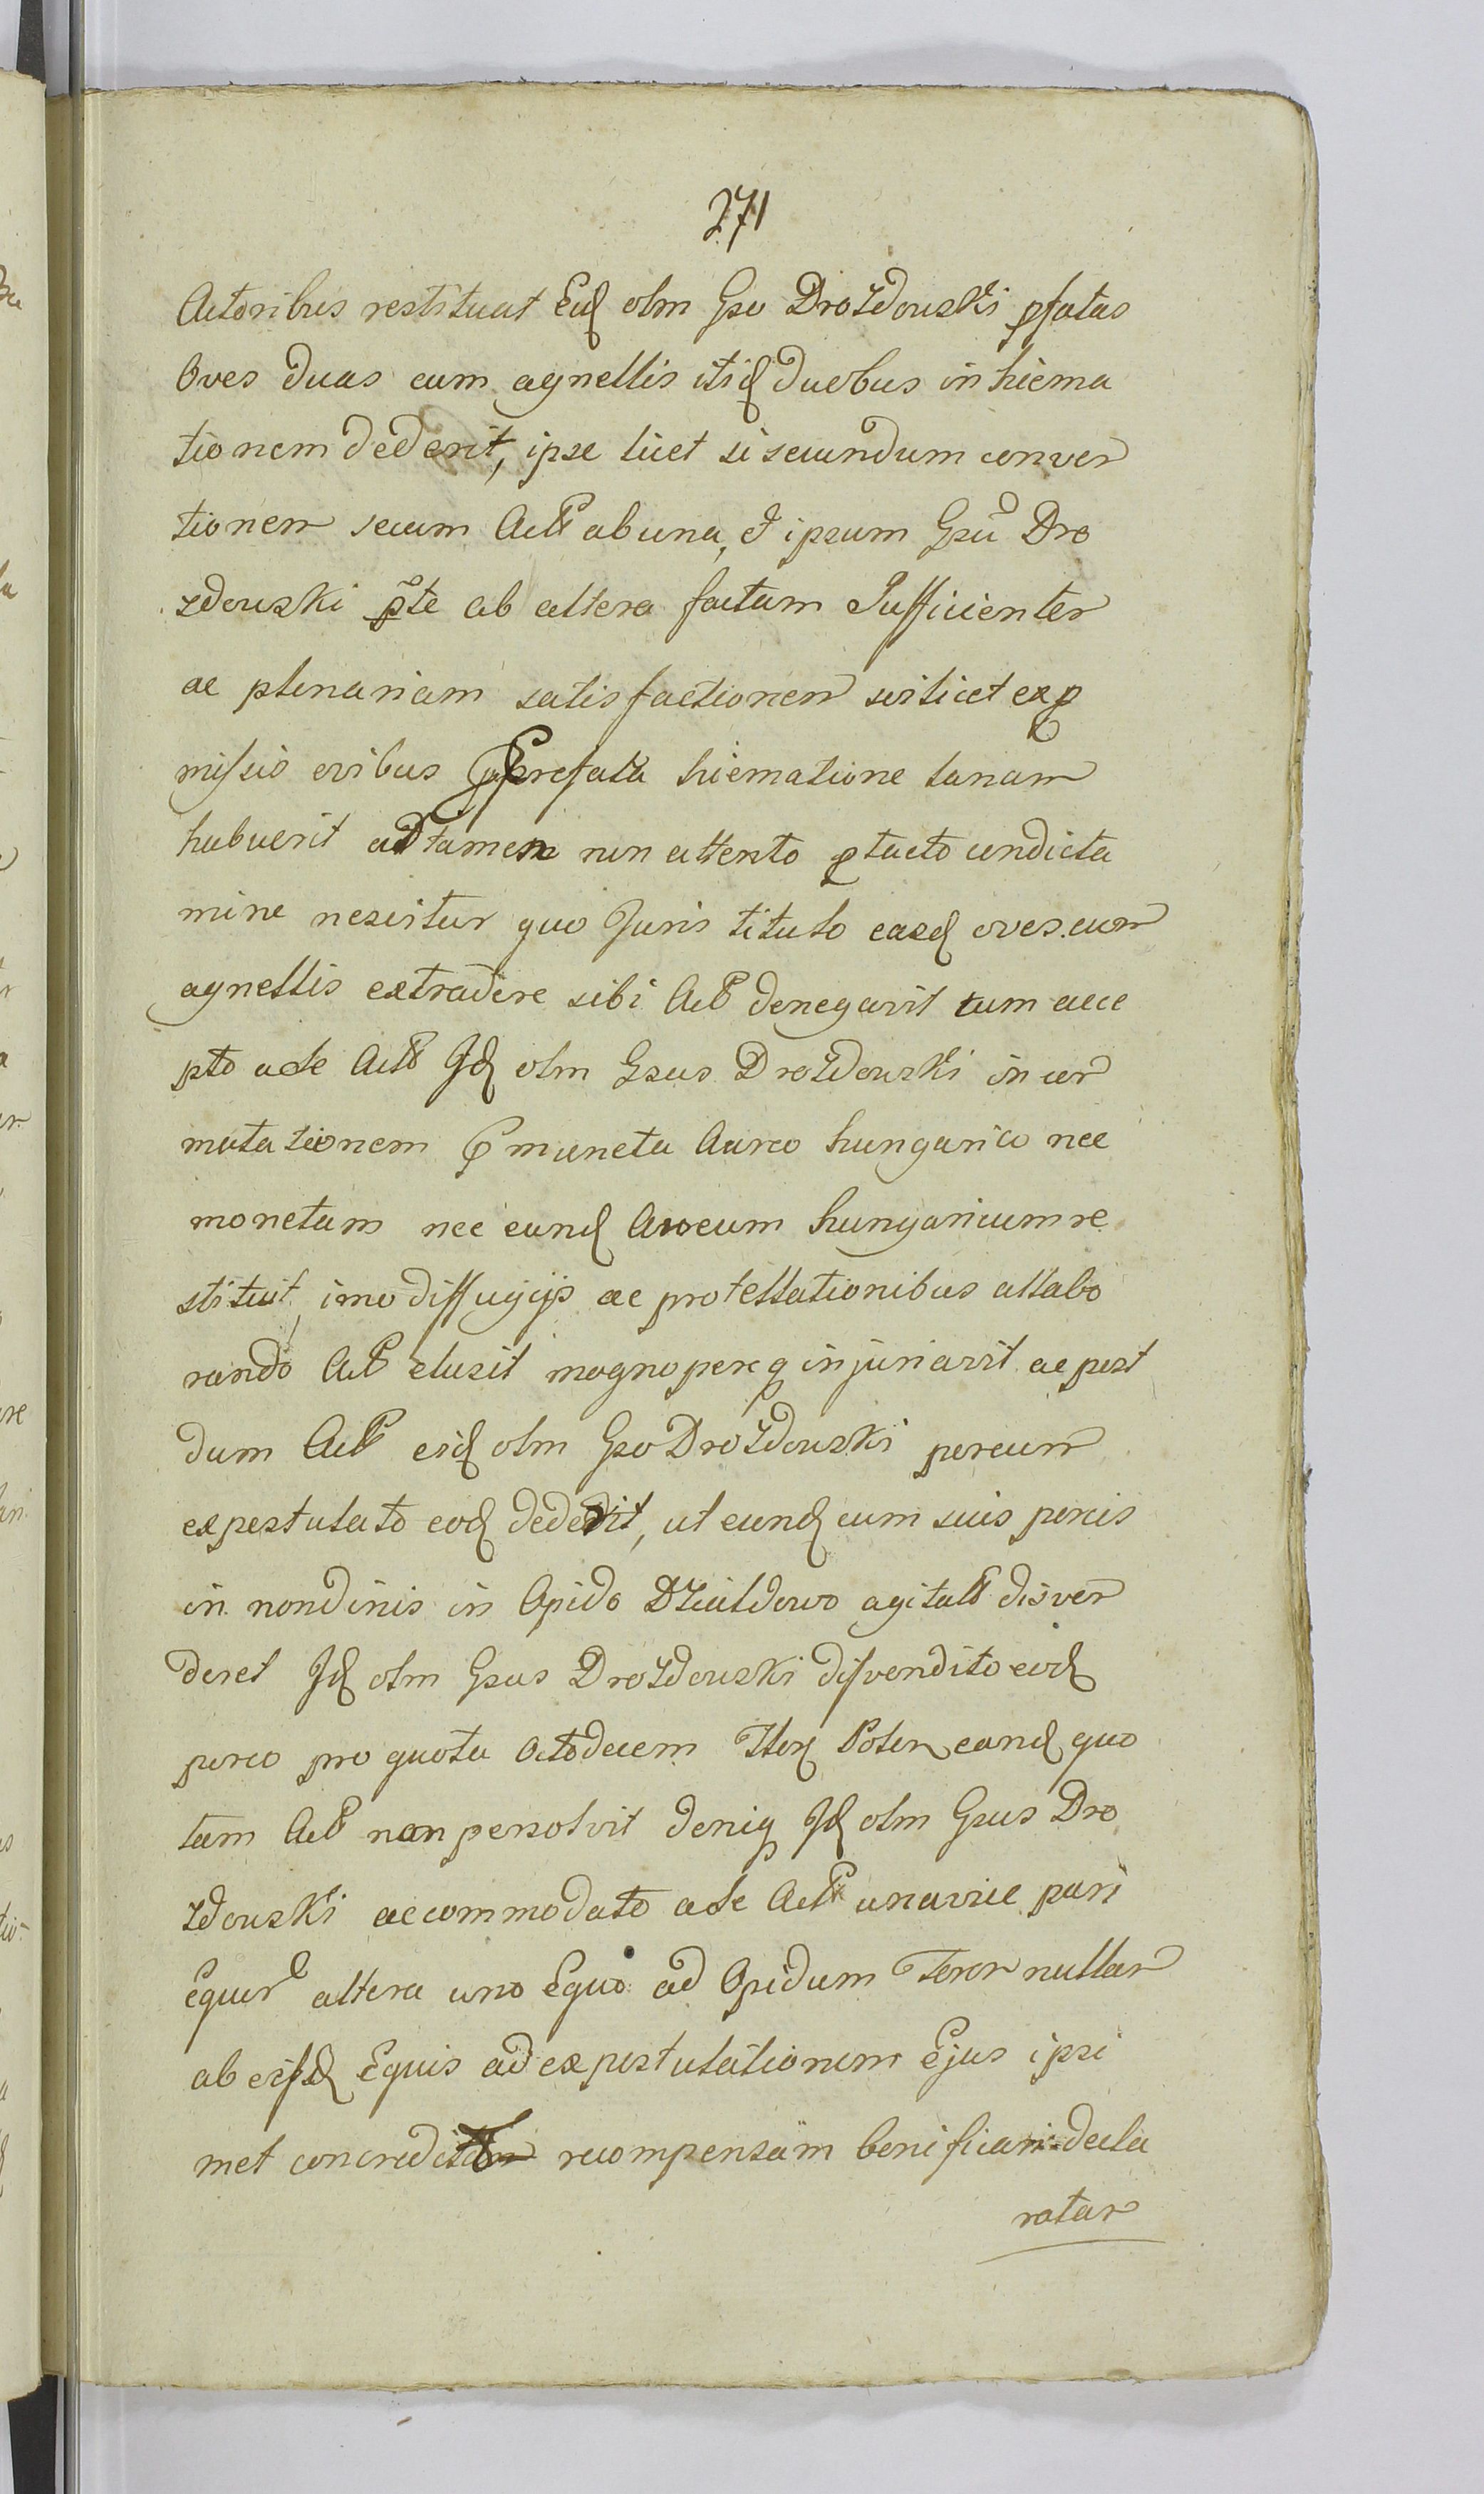 271
Actoribus restituat Eid olm Gso Drozdowski pfatas
Oves duas cum agnellis itid duobus in hiema
tionem dederit, ipse licet si secundum conven
tionem secum Actt ab una, et ipsum Gsu Dro
zdowski pte ab altera factam Sufficienter
ac plenariam satisfactionem scilicet ex p
missis ovibus prefata hiematione lanam
habuerit adtamen non attento ptacto condicta
mine nescitur quo Juris titulo easd oves cum
agnellis extradere sibi Act denegavit tum acce
pto a de Actt Id olm Gsus Drozdowski in com
mutationem P muneta Aureo hungarico nec
monetam nec eund Aureum hungaricum re
stituit, imo diffugijs ac protellationibus allabo
rando Act elusit magnopereq injuriavit ac post
dum Act eid olm Gso Drozdowski porcum
expostulato eod dederit, ut eund cum suis porcis
in nondinis in Opido Działdowo agitatt disven
deret Id olm Gsus Drozdowski disvendito eod
porco pro quota Octodecem fflor Polon eand quo
tam Act non persolvit deniq Id olm Gsus Dro
zdowski accommodato a de Actt una vice pari
Equor altera uno Equo ad Opidum Torun nullam
ab eisd Equis ad expostulationem Ejus ipsi
met concredit recompensam benificam decla
ratam